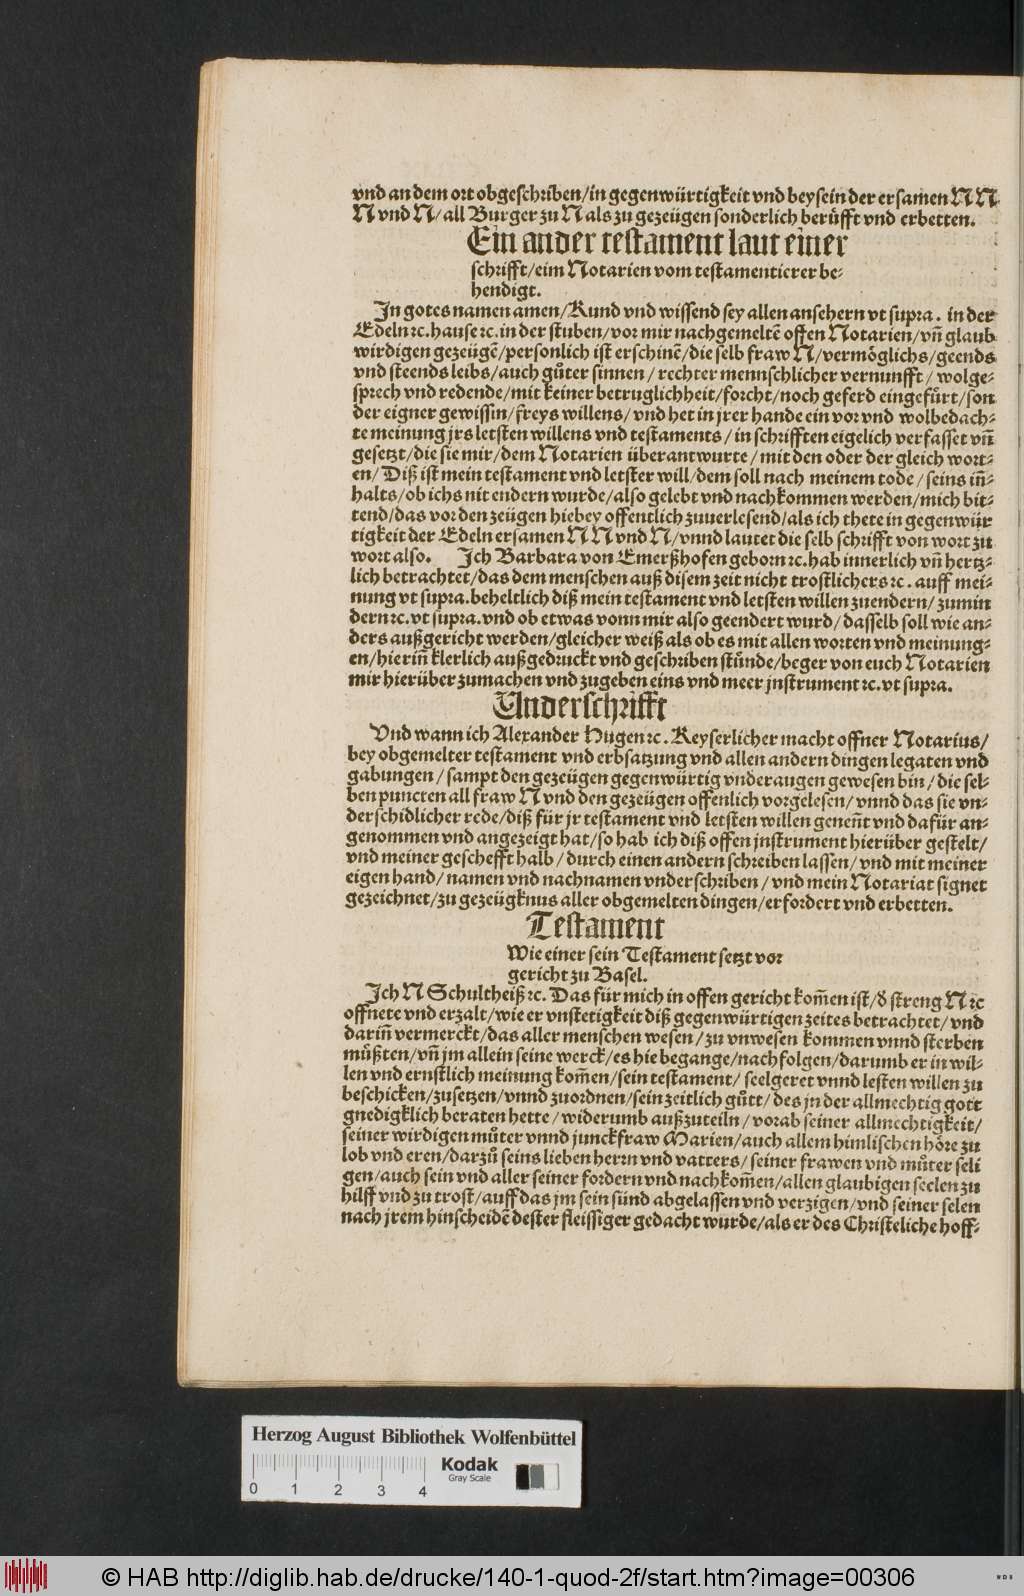 vnd an dem ort obgeschriben/in gegenwürtigkeit vnd beysein der ersamen N N
N vnd N/ all Burger zu N als zu gezeügen sonderlich berüfft vnd erbetten.
Ein ander testament laut einer
schrifft/eim Notarien vom testamentierer be-
hendigt.
In gotes namen amen/Kund vnd wissend sey allen ansehern vt supra. in der
Edeln ꝛc. hause ꝛc. in der stuben/vor mir nachgemeltẽ offen Notarien/vñ glaub
wirdigen gezeügẽ/personlich ist erschinẽ/die selb fraw N/vermöglichs/geends
vnd steends leibs/auch gůter sinnen / rechter mennschlicher vernunfft / wolge-
sprech vnd redende/mit keiner betruglichheit/forcht/noch geferd eingefůrt/son
der eigner gewissin/freys willens/ vnd het in jrer hande ein vor vnd wolbedach-
te meinung jrs letsten willens vnd testaments / in schrifften eigelich verfasset vñ
gesetzt/die sie mir/dem Notarien überantwurte / mit den oder der gleich wort-
en/ Diß ist mein testament vnd letster will/dem soll nach meinem tode / seins iñ-
halts/ob ichs nit endern wurde/also gelebt vnd nachkommen werden/mich bit-
tend/das vor den zeügen hiebey offentlich zuuerlesend/als ich thete in gegenwür
tigkeit der Edeln ersamen N N vnd N/vnnd lautet die selb schrifft von wort zu
wort also. Ich Barbara von Emerßhofen geborn ꝛc. hab innerlich vñ hertz-
lich betrachtet/das dem menschen auß disem zeit nicht trostlichers ꝛc. auff mei-
nung vt supra. beheltlich diß mein testament vnd letsten willen zuendern/zumin
dern ꝛc. vt supra. vnd ob etwas vonn mir also geendert wurd/dasselb soll wie an-
ders außgericht werden/gleicher weiß als ob es mit allen worten vnd meinung-
en/hieriñ klerlich außgedruckt vnd geschriben stůnde/beger von euch Notarien
mir hierüber zumachen vnd zugeben eins vnd meer jnstrument ꝛc. vt supra.
Vnderschrifft
Vnd wann ich Alexander Hugen ꝛc. Keyserlicher macht offner Notarius/
bey obgemelter testament vnd erbsatzung vnd allen andern dingen legaten vnd
gabungen / sampt den gezeügen gegenwürtig vnder augen gewesen bin / die sel-
ben puncten all fraw N vnd den gezeügen offenlich vorgelesen/ vnnd das sie vn-
derschidlicher rede/diß für jr testament vnd letsten willen geneñt vnd dafür an-
genommen vnd angezeigt hat/so hab ich diß offen jnstrument hierüber gestelt/
vnd meiner geschefft halb / durch einen andern schreiben lassen/ vnd mit meiner
eigen hand/ namen vnd nachnamen vnderschriben / vnd mein Notariat signet
gezeichnet/zu gezeügknus aller obgemelten dingen/erfordert vnd erbetten.
Testament
Wie einer sein Testament setzt vor
gericht zu Basel.
Ich N Schultheiß ꝛc. Das für mich in offen gericht kom̃en ist/d streng N ꝛc
offnete vnd erzalt/wie er vnstetigkeit diß gegenwürtigen zeites betrachtet/ vnd
dariñ vermerckt/das aller menschen wesen / zu vnwesen kommen vnnd sterben
můßten/vñ jm allein seine werck/es hie begange/nachfolgen/darumb er in wil-
len vnd ernstlich meinung kom̃en/sein testament/ seelgeret vnnd lesten willen zu
beschicken/zusetzen/vnnd zuordnen/sein zeitlich gůtt/ des jn der allmechtig gott
gnedigklich beraten hette / widerumb außzuteiln / vorab seiner allmechtigkeit/
seiner wirdigen můter vnnd junckfraw Marien/auch allem himlischen höre zu
lob vnd eren/darzů seins lieben herrn vnd vatters/ seiner frawen vnd můter seli
gen/auch sein vnd aller seiner fordern vnd nachkom̃en/allen glaubigen seelen zu
hilff vnd zu trost/auff das jm sein sünd abgelassen vnd verzigen/vnd seiner selen
nach jrem hinscheidẽ dester fleissiger gedacht wurde/als er des Christeliche hoff-
Herzog August Bibliothek Wolfenbüttel
Kodak
Gray Scale
0 1 2 3 4
© HAB http://diglib.hab.de/drucke/140-1-quod-2f/start.htm?image=00306